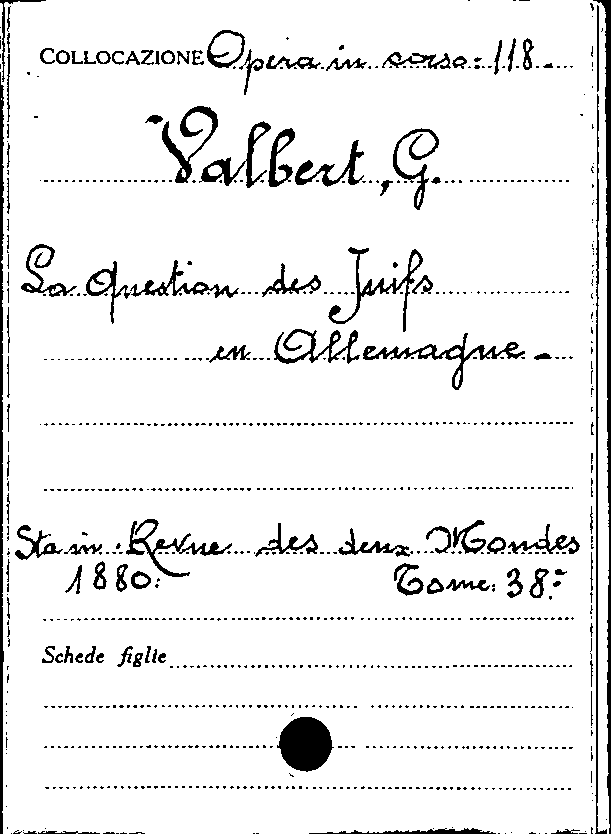 COLLOCAZIONE Opera in corso: 118.
Valbert, G.
La Question des Juifs
en Allemagne.
Sta in. Revue des deux Mondes
1880. Tome. 38.
Schede figlie